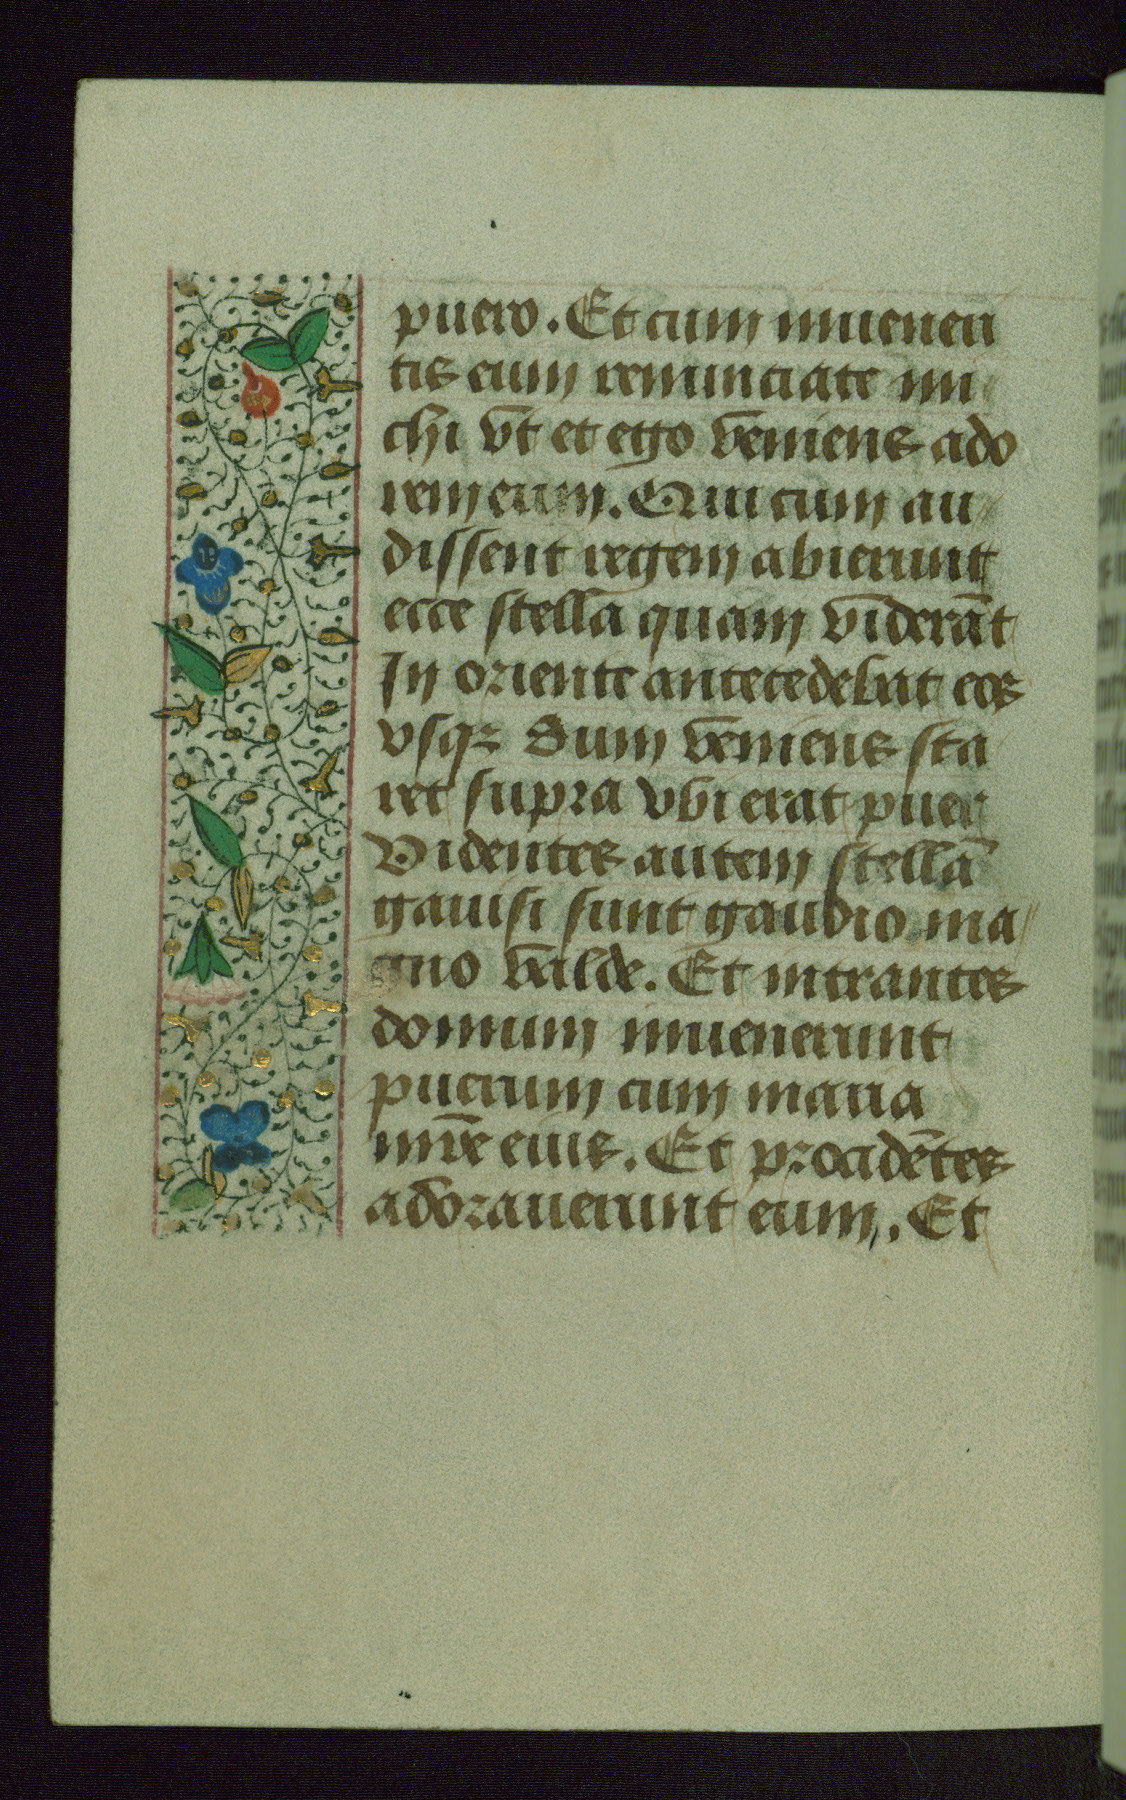 puero. Et cum inueneri
tis eum renunciate mi
chi vt et ego veniens ado
rem eum. Qui cum au
dissent regem abierunt
ecce stella quam viderāt
In oriente antecedebat eos
vsqꝫ dum veniens sta
ret supra vbi erat puer
Videntes autem stellā
gauisi sunt gaudio ma
gno valde. Et intrantes
domum inuenerunt
puerum cum maria
mr̄e eius. Et procidētes
adorauerunt eum. Et